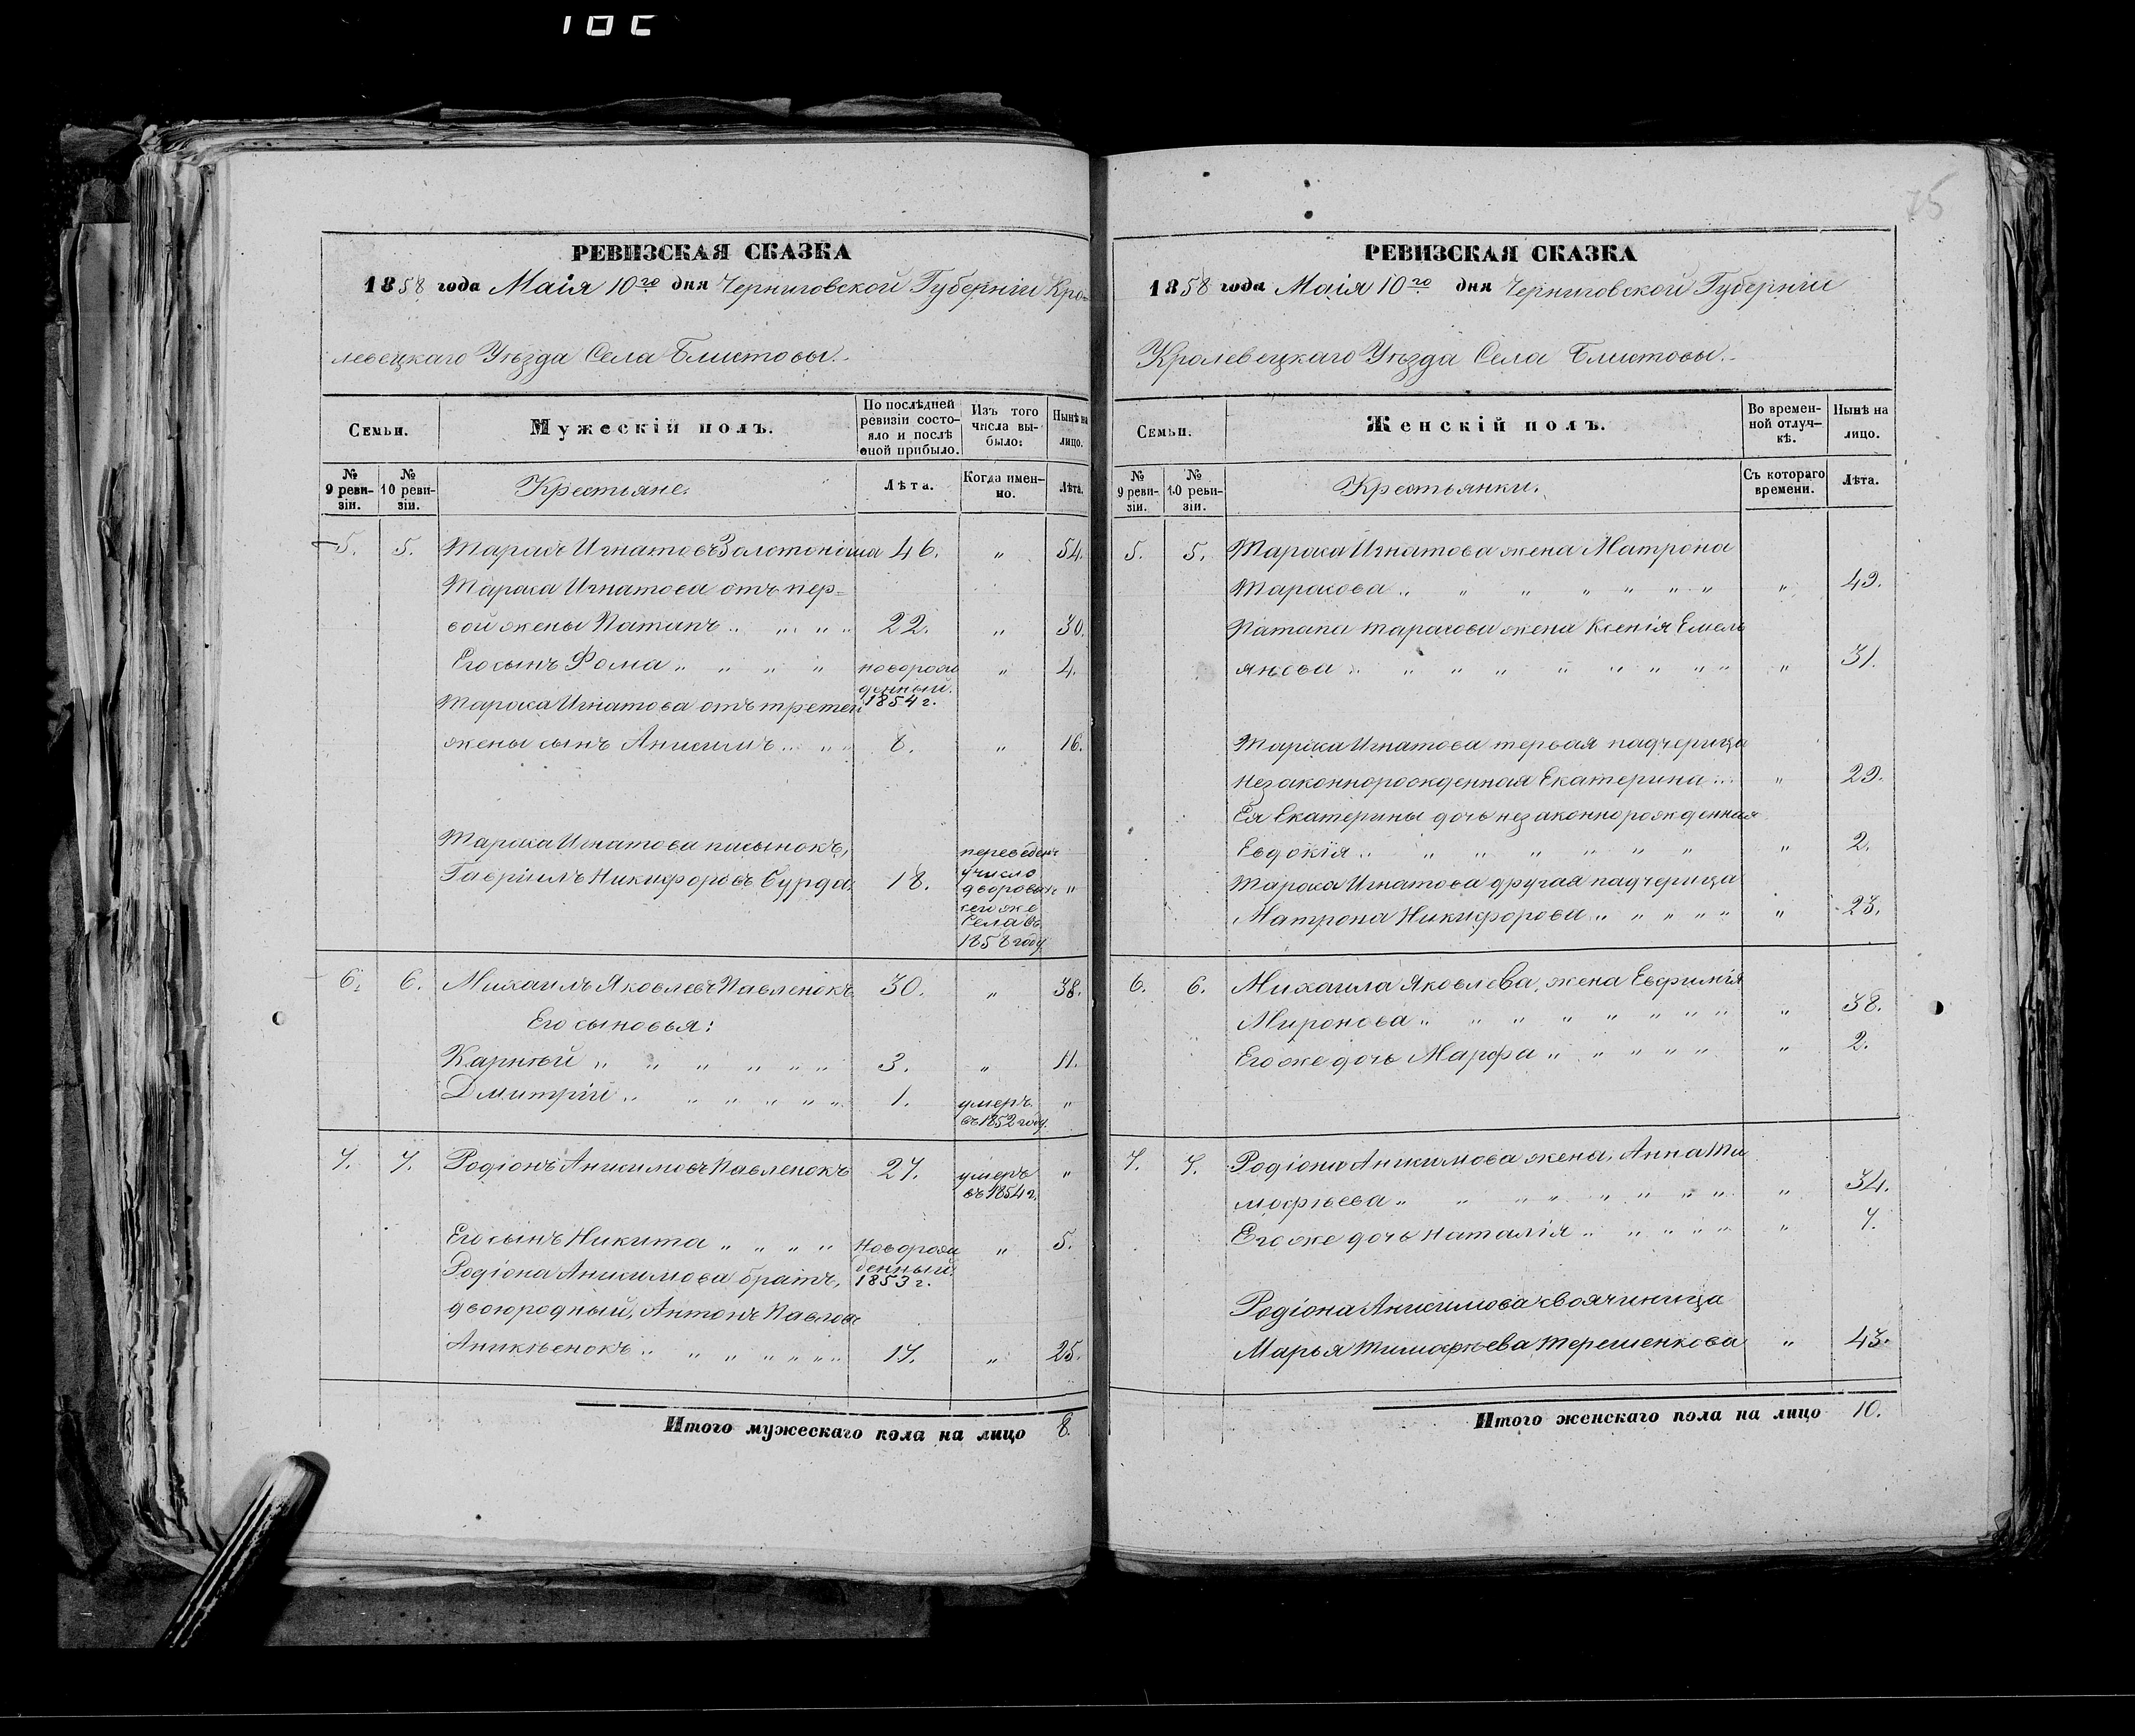 75
РЕВИЗСКАЯ СКАЗКА
1858 года Маія 10го дня Черниговской Губерніи Кро-
левецкаго Уѣзда Села Блистовы.
Семьи.
Мужескій полъ.
По послѣдней ревизіи состояло и послѣ оной прибыло.
Изъ того числа выбыло:
Нынѣ на лицо.
№ 9 ревизіи.
№ 10 ревизіи.
Крестьяне.
Лѣта.
Когда именно.
Лѣта.
5. 5. Тарасъ Игнатовъ Золотоноша 46. " 54.
Тараса Игнатова отъ пер-
вой жены Патапъ " " " " 22. " 30.
Его сынъ Фома " " " " новорож
денный 1854 г. " 4.
Тараса Игнатова отъ третей
жены сынъ Анисимъ " " " 8. " 16.
Тараса Игнатова пасынокъ,
Гавріилъ Никифоровъ Бурда 18. переведенъ
учисло
дворовыхъ "
сего же
Села въ
1858 году.
6. 6. Михаилъ Яковлевъ Павленокъ 30. " 38.
Его сыновья:
Карпѣй " " " " " " 3. " 11.
Дмитрій " " " " " " 1. умеръ "
въ 1852 году.
7. 7. Родіонъ Анисимовъ Павленокъ 27. умеръ "
въ 1854 г.
Его сынъ Никита " " " " Новорож
денный 1853 г. " 5.
Родіона Анисимова братъ,
двоюродный, Антонъ Павловъ
Аникѣенокъ " " " " " " " 17. " 25.
Итого мужескаго пола на лицо 8.
РЕВИЗСКАЯ СКАЗКА
1858 года Маія 10го дня Черниговской Губерніи
Кролевецкаго Уѣзда Села Блистовы.
Семьи.
Женскій полъ.
Во временной отлучкѣ.
Нынѣ на лицо.
№ 9 ревизіи.
№ 10 ревизіи.
Крестьянки.
Съ котораго времени.
Лѣта.
5. 5. Тараса Игнатова жена Матрона
Тарасова " " " " " " " " 49.
Патапа Тарасова жена Ксенія Емель
янова " " " " " " " " " " 31.
Тараса Игнатова первая падчерица
незаконнорожденная Екатерина " " 29.
Ея Екатерины дочь незаконнорожденная
Евдокія " " " " " " " " 2.
Тараса Игнатова другая падчерица
Матрона Никифорова " " " " " " 23.
6. 6. Михаила Яковлева, жена Евфимія
Миронова " " " " " " " " " 38.
Его же дочь Марфа " " " " " " 2.
7. 7. Родіона Анисимова жена, Анна Ти
мофѣева " " " " " " " " " 34.
Его же дочь Наталія " " " " " " 7.
Родіона Анисимова своячиница
Марья Тимофѣева Терешенкова " 43.
Итого женскаго пола на лицо 10.